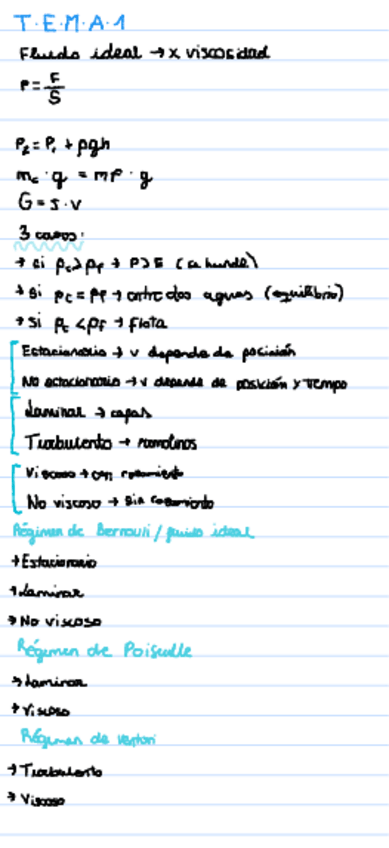 T.E.M.A.1
Fluido ideal → x viscosidad
P = F/S
P₂ = P₁ + ρgh
mc · g = mF · g
G = s · v
3 casos:
→ si ρc > ρF → P > E (se hunde)
→ si ρc = ρF → entre dos aguas (equilibrio)
→ si ρc < ρF → flota
Estacionario → v depende de posición
No estacionario → v depende de posición y tiempo
Laminar → capas
Turbulento → remolinos
Viscoso → con rozamiento
No viscoso → sin rozamiento
Régimen de Bernouli / fluido ideal
→ Estacionario
→ Laminar
→ No viscoso
Régimen de Poiseulle
→ Laminar
→ Viscoso
Régimen de Venturi
→ Turbulento
→ Viscoso